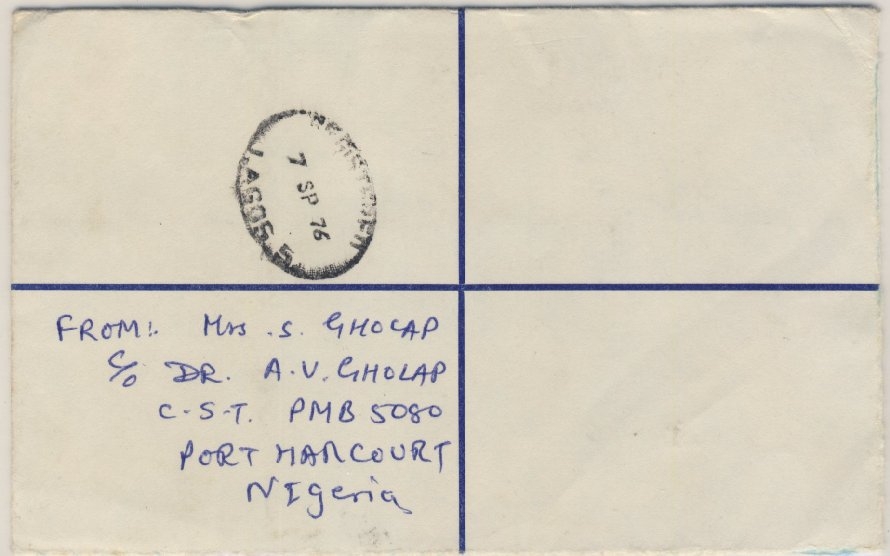 REGISTERED
7 SP 76
LAGOS 5
FROM:. Mrs .S. GHOLAP
C/o DR. A.V. GHOLAP
C-S-T. PMB 5080
PORT HARCOURT
NIgeria